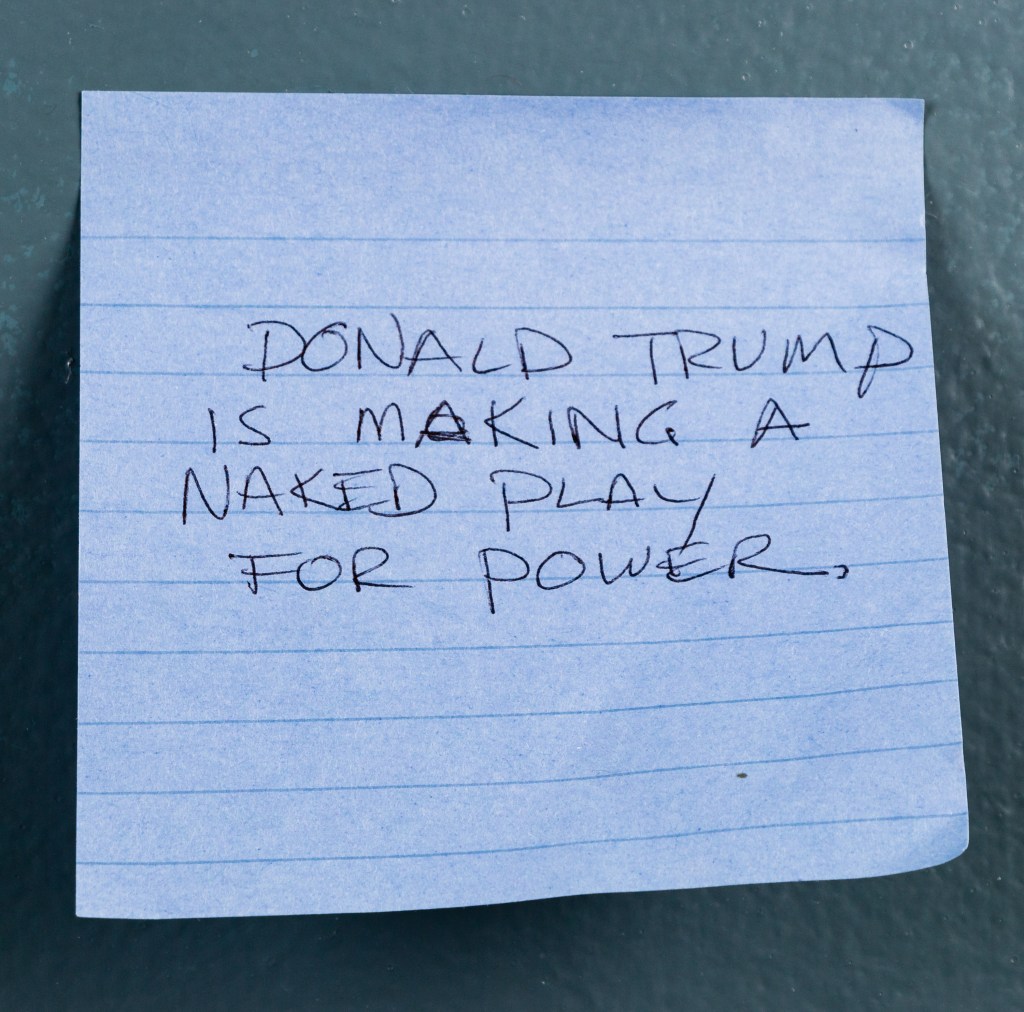 DONALD TRUMP
IS MAKING A
NAKED PLAY
FOR POWER.